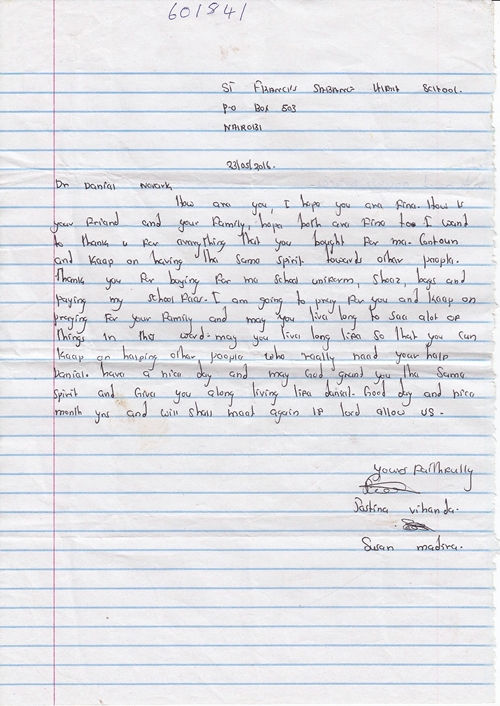 601841
ST FRANCIS SHBANZ HIGH SCHOOL.
P-O BOX 503
NAIROBI
23/05/2016.
Dr Danial Novark,
How are you, I hope you are fine. How is
your friend and your family, hope both are fine too I want
to thank u for everything that you bought for me. Contoun
and Keep on having the same spirit towards other people.
Thank you for buying for me school uniform, shoez, bags and
paying my school fees. I am going to pray for you and keep on
praying for your family and may you live long to see alot of
things in this word. may you live long life so that you can
keep on helping other people who really need your help
Danial. have a nice day and may God grant you the same
spirit and Give you along living life daniel. Good day and nice
month yes and will shall meet again if lord allow us.
yours faithfully
Pastina vihanda.
Susan madira.